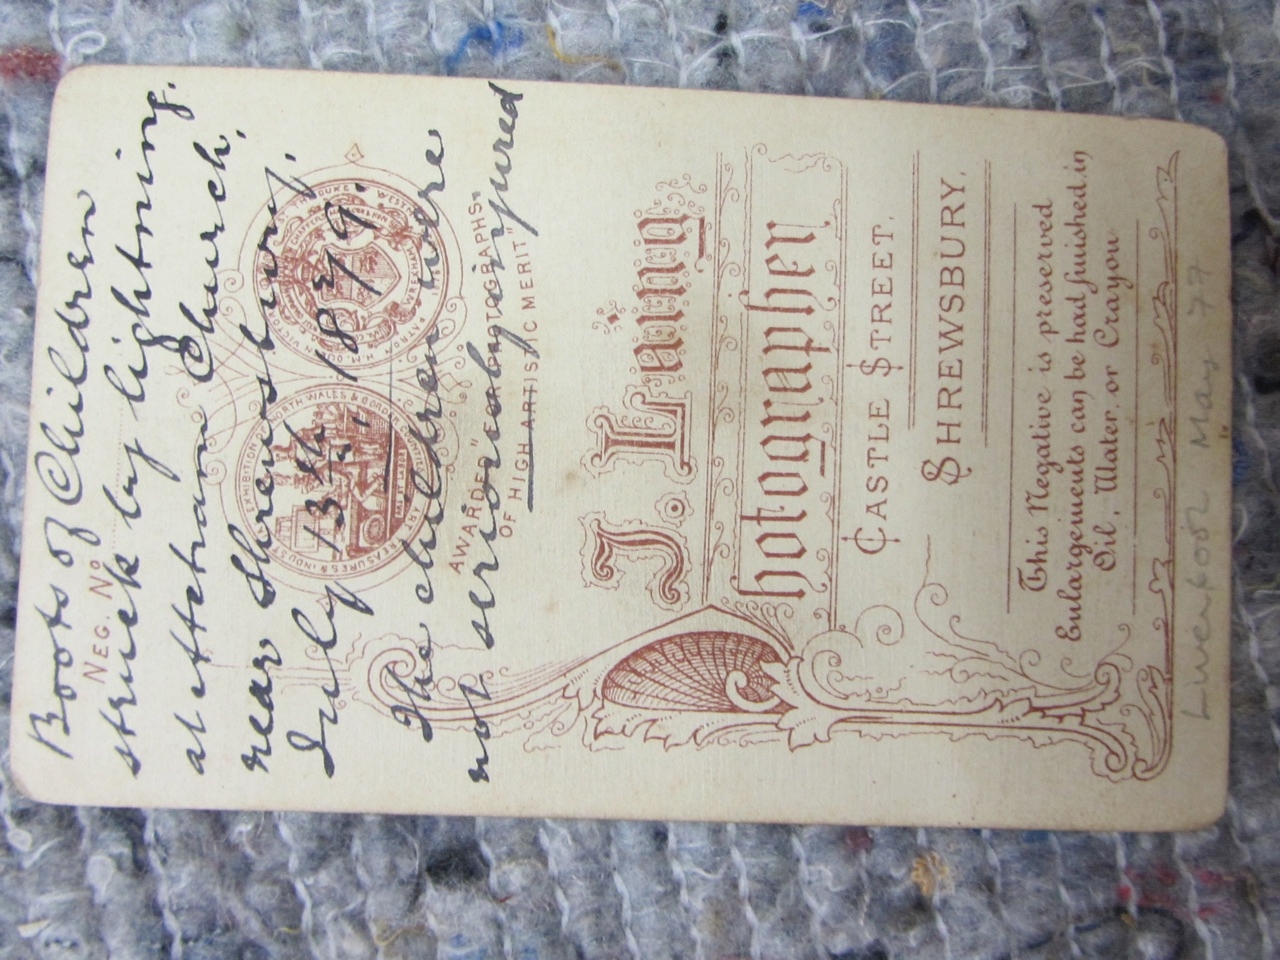 Boots of Children
NEG. No.
struck by lightning.
at Attcham Church,
near Shrewsbury,
July 13th, 1879.
The children were
not seriously injured
INDUSTRIAL EXHIBITION NORTH WALES & BORDER COUNTIES
ART TREASURES
WREXHAM
AWARDED "FOR PHOTOGRAPHS,
OF HIGH ARTISTIC MERIT"
J. Laing
Photographer,
CASTLE STREET,
SHREWSBURY.
This Negative is preserved
Enlargements can be had finished in
Oil, Water, or Crayon
May 77